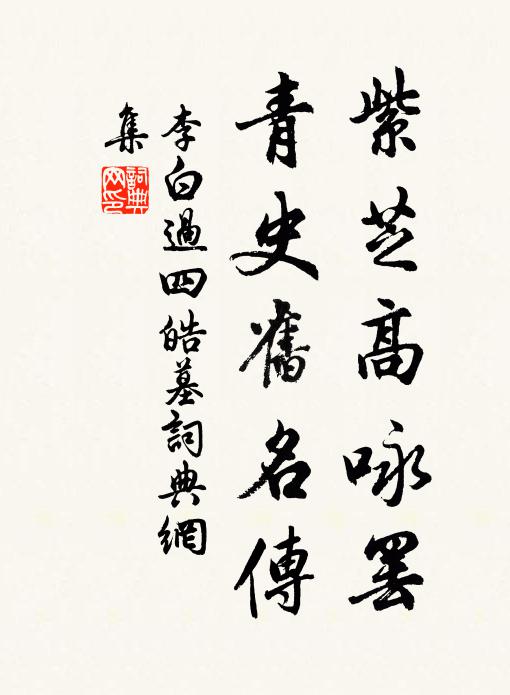 紫芝高咏罢
青史舊名傳
李白過四皓墓詞典網
集
詞典网印